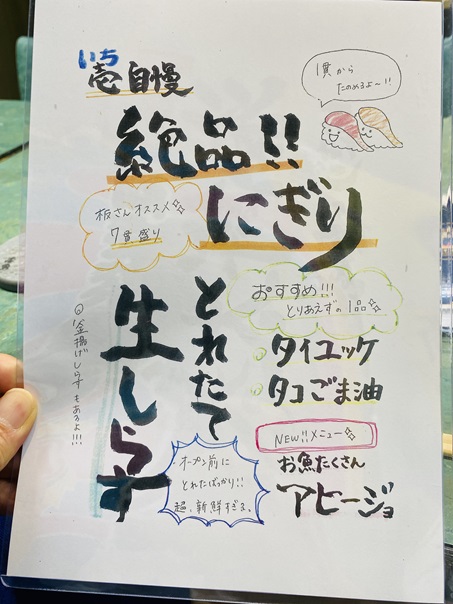 いち
壱自慢
1貫から
たのめるよ〜!!
絶品!!
にぎり
板さんオススメ
7貫盛り
おすすめ!!!
とりあえずの1品
タイユッケ
タコごま油
とれたて
生しらす
◎釜揚げしらすもあるよ!!!
NEW!!メニュー
お魚たくさん
アヒージョ
オープン前に
とれたばっかり!!
超、新鮮すぎる。